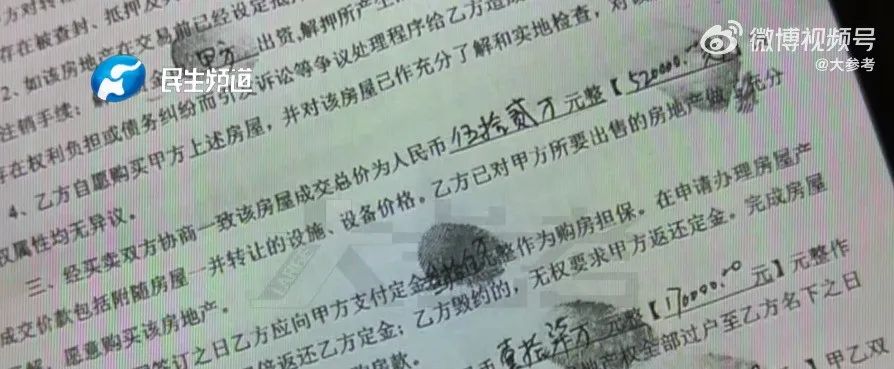 微博视频号
@大参考
民生频道
存在被查封、抵押及
2、如该房地产在交易前已经设定抵
甲方 出资,解押所产生
注销手续;
存在权利负担或债务纠纷而引发诉讼等争议处理程序给乙方造成
4、乙方自愿购买甲方上述房屋,并对该房屋已作充分了解和实地检查,对
权属性均无异议。
三、经买卖双方协商一致该房屋成交总价为人民币 伍拾贰万 元整【520000.00
成交价款包括附随房屋一并转让的设施、设备价格。乙方已对甲方所要出售的房地产做了充分
了解,愿意购买该房地产。
签订之日乙方应向甲方支付定金 元整作为购房担保。在申请办理房屋产
倍返还乙方定金;乙方毁约的,无权要求甲方返还定金。完成房屋
壹拾柒万 元整【170000.00 元】元整作
地产权全部过户至乙方名下之日
甲乙双